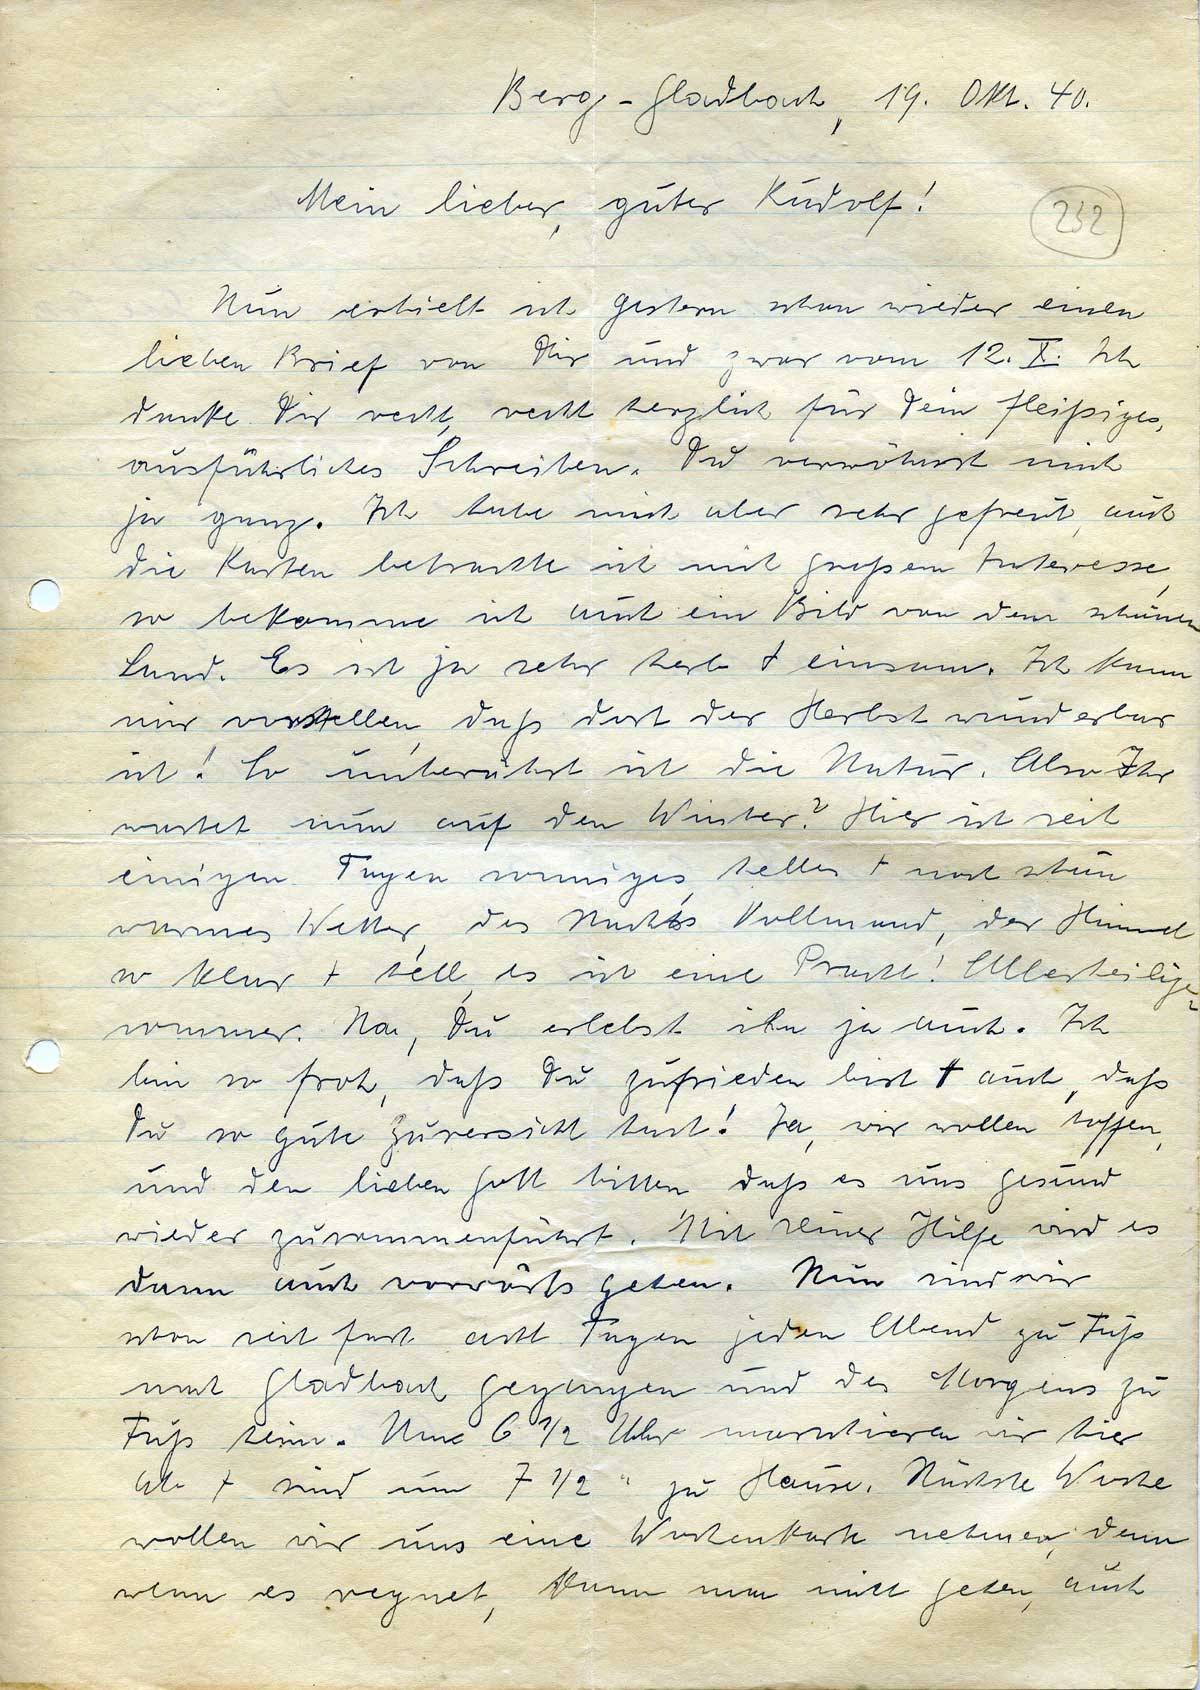 Berg-Gladbach, 19. Okt. 40.
Mein lieber, guter Rudolf!
232
Nun erhielt ich gestern schon wieder einen
lieben Brief von Dir und zwar vom 12. X. Ich
danke Dir recht, recht herzlich für Dein fleißiges,
ausführliches Schreiben. Du verwöhnst mich
ja ganz. Ich habe mich aber sehr gefreut, auch
die Karten betrachte ich mit großem Interesse,
so bekomme ich auch ein Bild von dem schönen
Land. Es ist ja sehr herb + einsam. Ich kann
mir vorstellen, daß dort der Herbst wunderbar
ist! So unberührt ist die Natur. Also Ihr
wartet nun auf den Winter? Hier ist seit
einigen Tagen sonniges, helles + noch schön
warmes Wetter, des Nachts Vollmond, der Himmel
so klar + hell, es ist eine Pracht! Allerheiligen-
sommer. Na, Du erlebst ihn ja auch. Ich
bin so froh, daß Du zufrieden bist + auch, daß
Du so gute Zuversicht hast! Ja, wir wollen hoffen,
und den lieben Gott bitten daß es uns gesund
wieder zusammenführt. Mit seiner Hilfe wird es
dann auch vorwärts gehen. Nun sind wir
schon seit fast acht Tagen jeden Abend zu Fuß
nach Gladbach gegangen und des Morgens zu
Fuß heim. Um 6 1/2 Uhr marschieren wir hier
ab + sind um 7 1/2 " zu Hause. Nächste Woche
wollen wir uns eine Wochenkarte nehmen, denn
wenn es regnet, kann man nicht gehen, auch